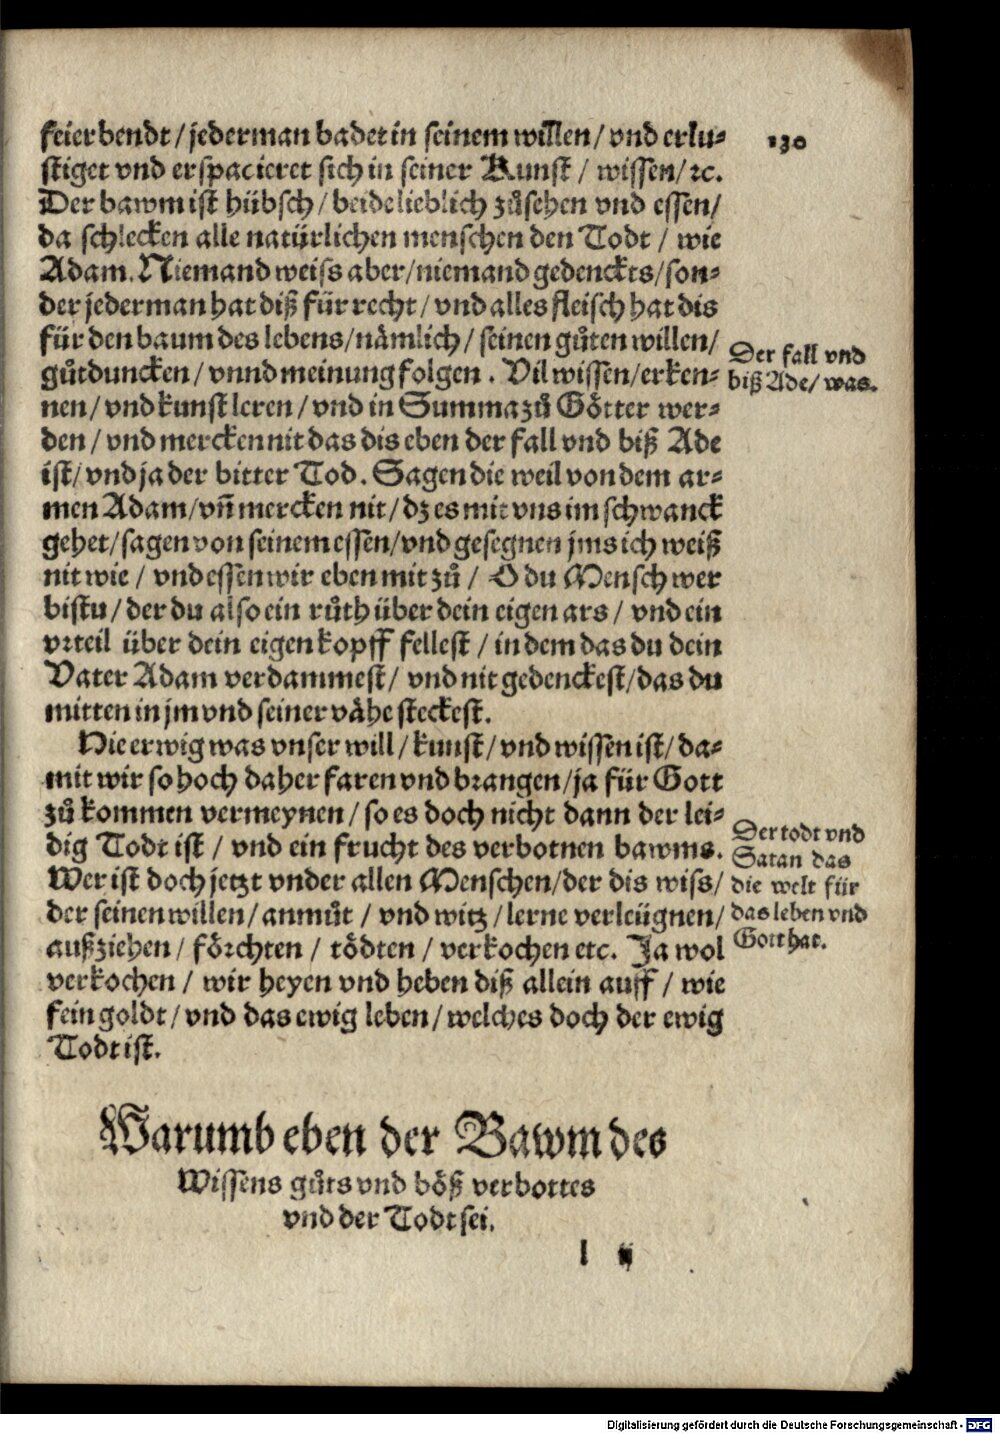 130
feierbendt / jederman badet in seinem willen / vnd erlu-
stiget vnd erspacieret sich in seiner Kunst / wissen / ꝛc.
Der bawm ist hübsch / beide lieblich zůsehen vnd essen /
da schlecken alle natürlichen menschen den Todt / wie
Adam. Niemand weiss aber / niemand gedenckts / son-
der jederman hat diß für recht / vnd alles fleisch hat dis
für den baum des lebens / nämlich / seinen gůten willen /
gůtduncken / vnnd meinung folgen . Vil wissen / erken-
nen / vnd kunst leren / vnd in Summa zů Götter wer-
den / vnd mercken nit das dis eben der fall vnd biß Ade
ist / vnd ja der bitter Tod . Sagen die weil von dem ar-
men Adam / vñ mercken nit / dz es mit vns im schwanck
gehet / sagen von seinem essen / vnd gesegnen jms ich weiß
nit wie / vnd essen wir eben mit zů / O du Mensch wer
bistu / der du also ein růth über dein eigen ars / vnd ein
vrteil über dein eigen kopff fellest / in dem das du dein
Vater Adam verdammest / vnd nit gedenckest / das du
mitten in jm vnd seiner vähe steckest.
Hie erwig was vnser will / kunst / vnd wissen ist / da-
mit wir so hoch daher faren vnd brangen / ja für Gott
zů kommen vermeynen / so es doch nicht dann der lei-
dig Todt ist / vnd ein frucht des verbotnen bawms.
Wer ist doch jetzt vnder allen Menschen / der dis wiss /
der seinen willen / anmůt / vnd witz / lerne verleügnen /
außziehen / förchten / tödten / verkochen etc. Ja wol
verkochen / wir heyen vnd heben diß allein auff / wie
fein goldt / vnd das ewig leben / welches doch der ewig
Todt ist.
Der fall vnd
biß Ade / was.
Der todt vnd
Satan das
die welt für
das leben vnd
Gott hat.
Warumb eben der Bawm des
Wissens gůts vnd böß verbottes
vnd der Todt sei.
l ij
Digitalisierung gefördert durch die Deutsche Forschungsgemeinschaft - DFG